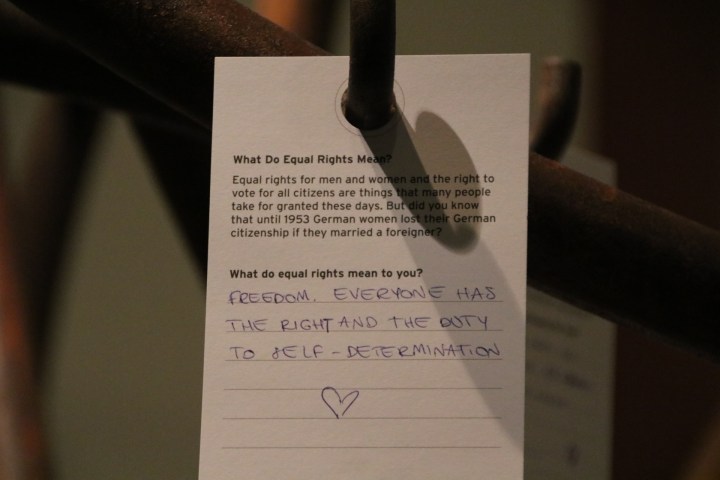 What Do Equal Rights Mean?
Equal rights for men and women and the right to
vote for all citizens are things that many people
take for granted these days. But did you know
that until 1953 German women lost their German
citizenship if they married a foreigner?
What do equal rights mean to you?
FREEDOM. EVERYONE HAS
THE RIGHT AND THE DUTY
TO SELF-DETERMINATION